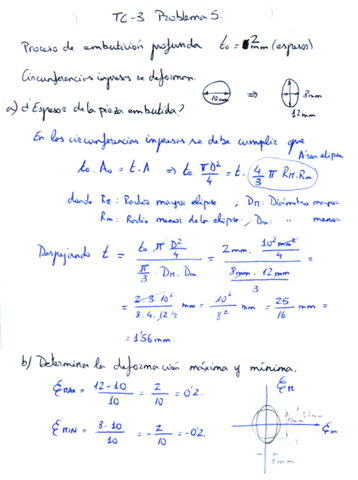 TC-3 Problema 5.
Proceso de embutición profunda t₀ = 2mm (espesor)
Circunferencias impresas se deforman.
10mm ⇒ 8mm
12mm
a) ¿Espesor de la pieza embutida?
En las circunferencias impresas se debe cumplir que
Área elipse
t₀. A₀ = t. A ⇒ t₀ π D²/4 = t. 4/3 π RM. Rm
donde RM = Radio mayor elipse, DM: Diámetro mayor
Rm: Radio menor de la elipse, Dm: " menor
Despejando t = (t₀ π D²/4) / (π/3 . DM. Dm) = (2mm. 10² mm²/4) / (8mm. 12mm/3) =
= 2·3 10²/8·4·12 mm = 10²/8² mm = 25/16 mm =
= 1'56 mm
b) Determina la deformación máxima y mínima.
ξMAX = 12-10/10 = 2/10 = 0'2.
ξMIN = 8-10/10 = -2/10 = -0'2.
ξM
12mm
ξm
8mm